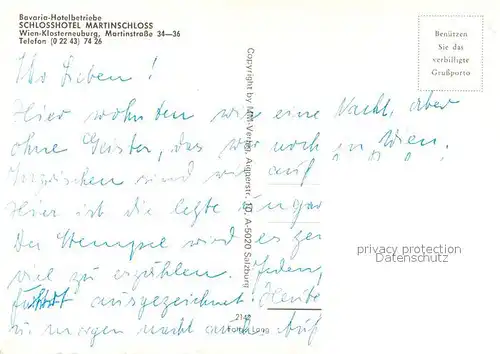 Bavaria-Hotelbetriebe
SCHLOSSHOTEL MARTINSCHLOSS
Wien-Klosterneuburg, Martinstraße 34—36
Telefon (0 22 43) 74 26
Benützen
Sie das
verbilligte
Grußporto
Ihr Lieben!
Hier wohnten wir eine Nacht, aber
ohne Geister, das war noch in Wien.
Inzwischen sind wir auf
Hier ist die letzte Ungar
Der Stempel wird es zei
viel zu erzählen. Jeden
fährt ausgezeichnet! Heute
u. morgen Nacht auch. Auf
Copyright by MM-Verlag, Aignerstr. 10, A-5020 Salzburg
privacy protection
Datenschutz